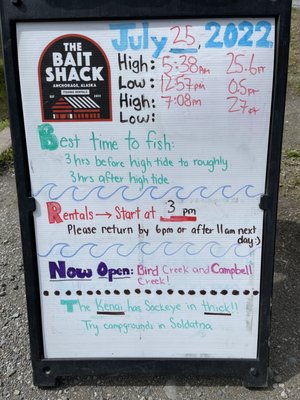 THE
BAIT
SHACK
ANCHORAGE, ALASKA
July 25, 2022
High: 5:38am 25.6ft
Low: 12:57pm 0.5ft
High: 7:08pm 27ft
Low:
Best time to fish:
3 hrs before high tide to roughly
3hrs after high tide
Rentals → Start at 3 pm
Please return by 6pm or after 11am next
day :)
Now Open: Bird Creek and Campbell
Creek!
The Kenai has Sockeye in thick!!
Try campgrounds in Soldatna